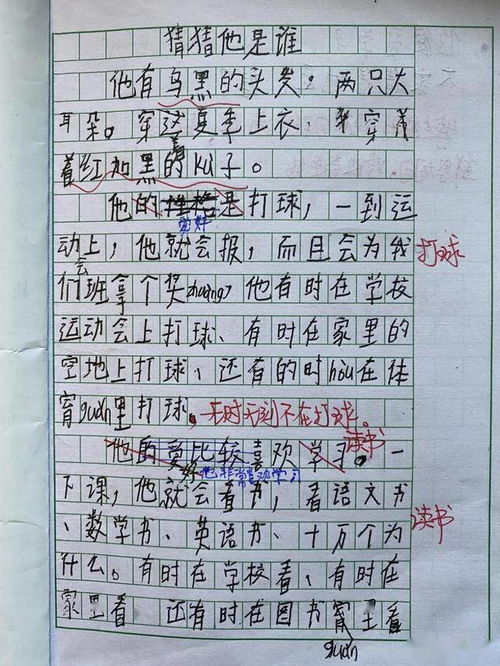 猜猜他是谁
他有乌黑的头发。两只大
耳朵。穿这夏季上衣、穿着
着红加黑的kù子。
他的性格是打球，一到运
爱好
动上，他就会报，而且会为我
会
打球
们班拿个奖zhuàng，他有时在学校
运动会上打球、有时在家里的
空地上打球，还有的时hòu在体
育guǎn里打球。无时无刻不在打球。
他的爱比较喜欢学习。一
好
读书
他非常喜欢学习
下课，他就会看书，看语文书
读书
、数学书、英语书、十万个为
什么。有时在学校看、有时在
家里看 还有时在图书宵里看
guǎn